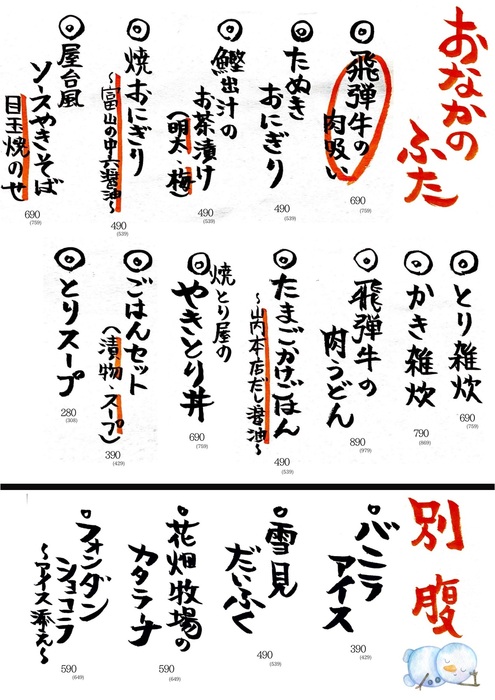 おなかの
ふた
飛彈牛の
肉吸い
690
(759)
たぬき
おにぎり
490
(539)
鰹出汁の
お茶漬け
(明太、梅)
490
(539)
焼おにぎり
〜富山の中六醤油〜
490
(539)
屋台風
ソースやきそば
目玉焼のせ
690
(759)
とり雑炊
690
(759)
かき雑炊
790
(869)
飛彈牛の
肉うどん
890
(979)
たまごかけごはん
〜山内本店だし醤油〜
490
(539)
焼とり屋の
やきとり丼
690
(759)
ごはんセット
(漬物、スープ)
390
(429)
とりスープ
280
(308)
別腹
バニラ
アイス
390
(429)
雪見
だいふく
490
(539)
花畑牧場の
カタラーナ
590
(649)
フォンダン
ショコラ
〜アイス添え〜
590
(649)